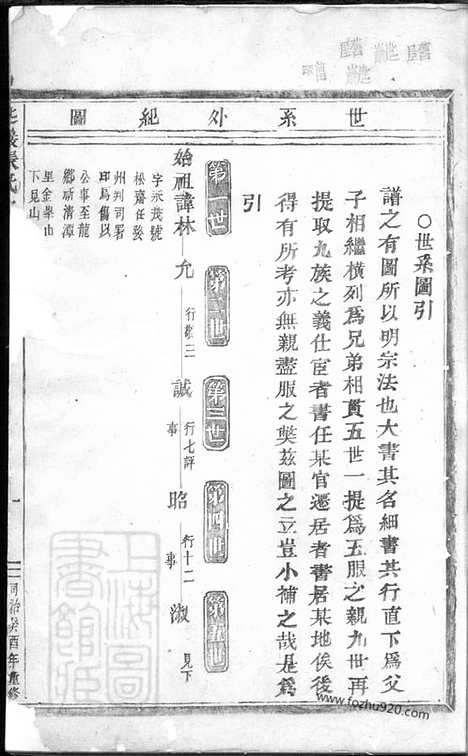 世系外紀圖
○世系圖引
譜之有圖所以明宗法也大書其名細書其行直下為父
子相繼橫列為兄弟相貫五世一提為五服之親九世再
提取九族之義仕宦者書任某官遷居者書居某地俟後
得有所考亦無親盡服之獘茲圖之立豈小補之哉是為
引
第一世
第二世
第三世
第四世
第五世
始祖諱林
允
行𢾗三
誠
行七評事
昭
行十二事
淑
見下
字永茂號
松齋任婺
州判司署
印馬傷以
公事至龍
鄉
清潭
里金
山
下見山
張氏
同治癸酉年重修
上海圖書館藏
www.fozhu920.com